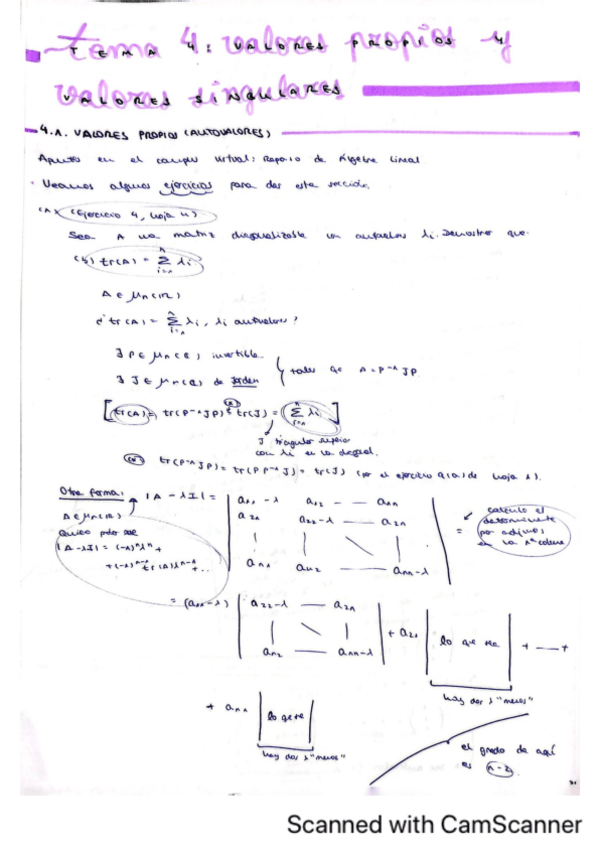 tema 4: valores propios y
TEMA 4: VALORES PROPIOS Y
valores singulares
VALORES SINGULARES
4.1. VALORES PROPIOS (AUTOVALORES)
Apuntes en el campus virtual: Repaso de Álgebra Lineal
Veamos algunos ejercicios para dar esta sección.
(A) (Ejercicio 4, hoja 4)
Sea A una matriz diagonalizable con autovalores λi. Demostrar que:
(b) tr(A) = Σ λi
A ∈ Mn(R)
¿ tr(A) = Σ λi, λi autovalores?
∃ P ∈ Mn( ) invertible
∃ J ∈ Mn( ) de Jordan
tales que A = P⁻¹JP
[tr(A) = tr(P⁻¹JP) = tr(J) = Σ λi]
J triangular superior
con λi en la diagonal.
tr(P⁻¹JP) = tr(PP⁻¹J) = tr(J) (por el ejercicio de hoja 1).
Otra forma: |A - λI| =
a11 - λ a12 — — a1n
a21 a22 - λ — a2n
an1 an2 — ann - λ
A ∈ Mn(R)
|A - λI| = (-1)ⁿλⁿ +
+ (-1)ⁿ⁻¹ tr(A)λⁿ⁻¹ + ...
= calculo el
determinante
por adjuntos
en la 1ª columna
= (a11 - λ) a22 - λ — a2n
an2 — ann - λ
+ a21 lo que sea + — +
hay dos λ "menos"
+ an1 lo que sea
hay dos λ "menos"
el grado de aquí
es n-2
Scanned with CamScanner